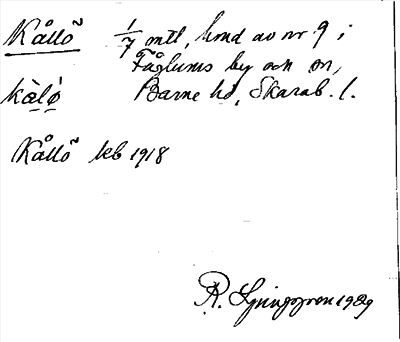 Kållö 1/7 mtl, hmd av nr 9 i
Fåglums by och sn,
kàlö Barne hd, Skarab. l.
Kållö keb 1918
R. Ljunggren 1929